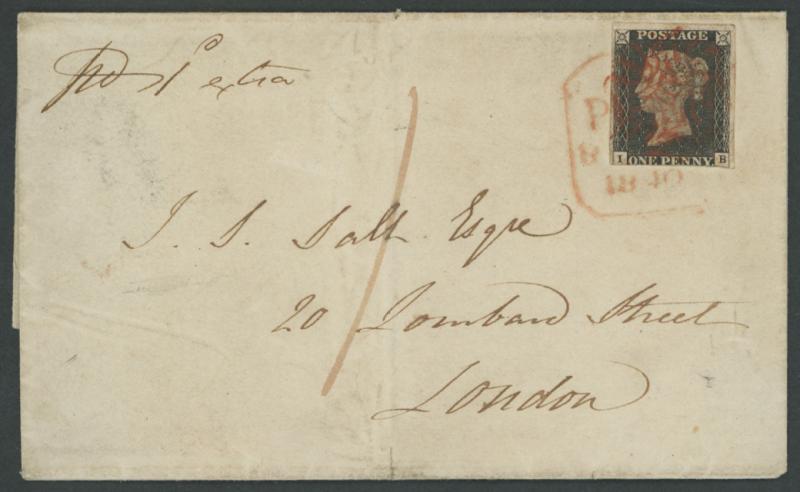 Pd 1d extra
POSTAGE
ONE PENNY
I B
1840
1
J. S. Salt Esqre
20 Lombard Street
London